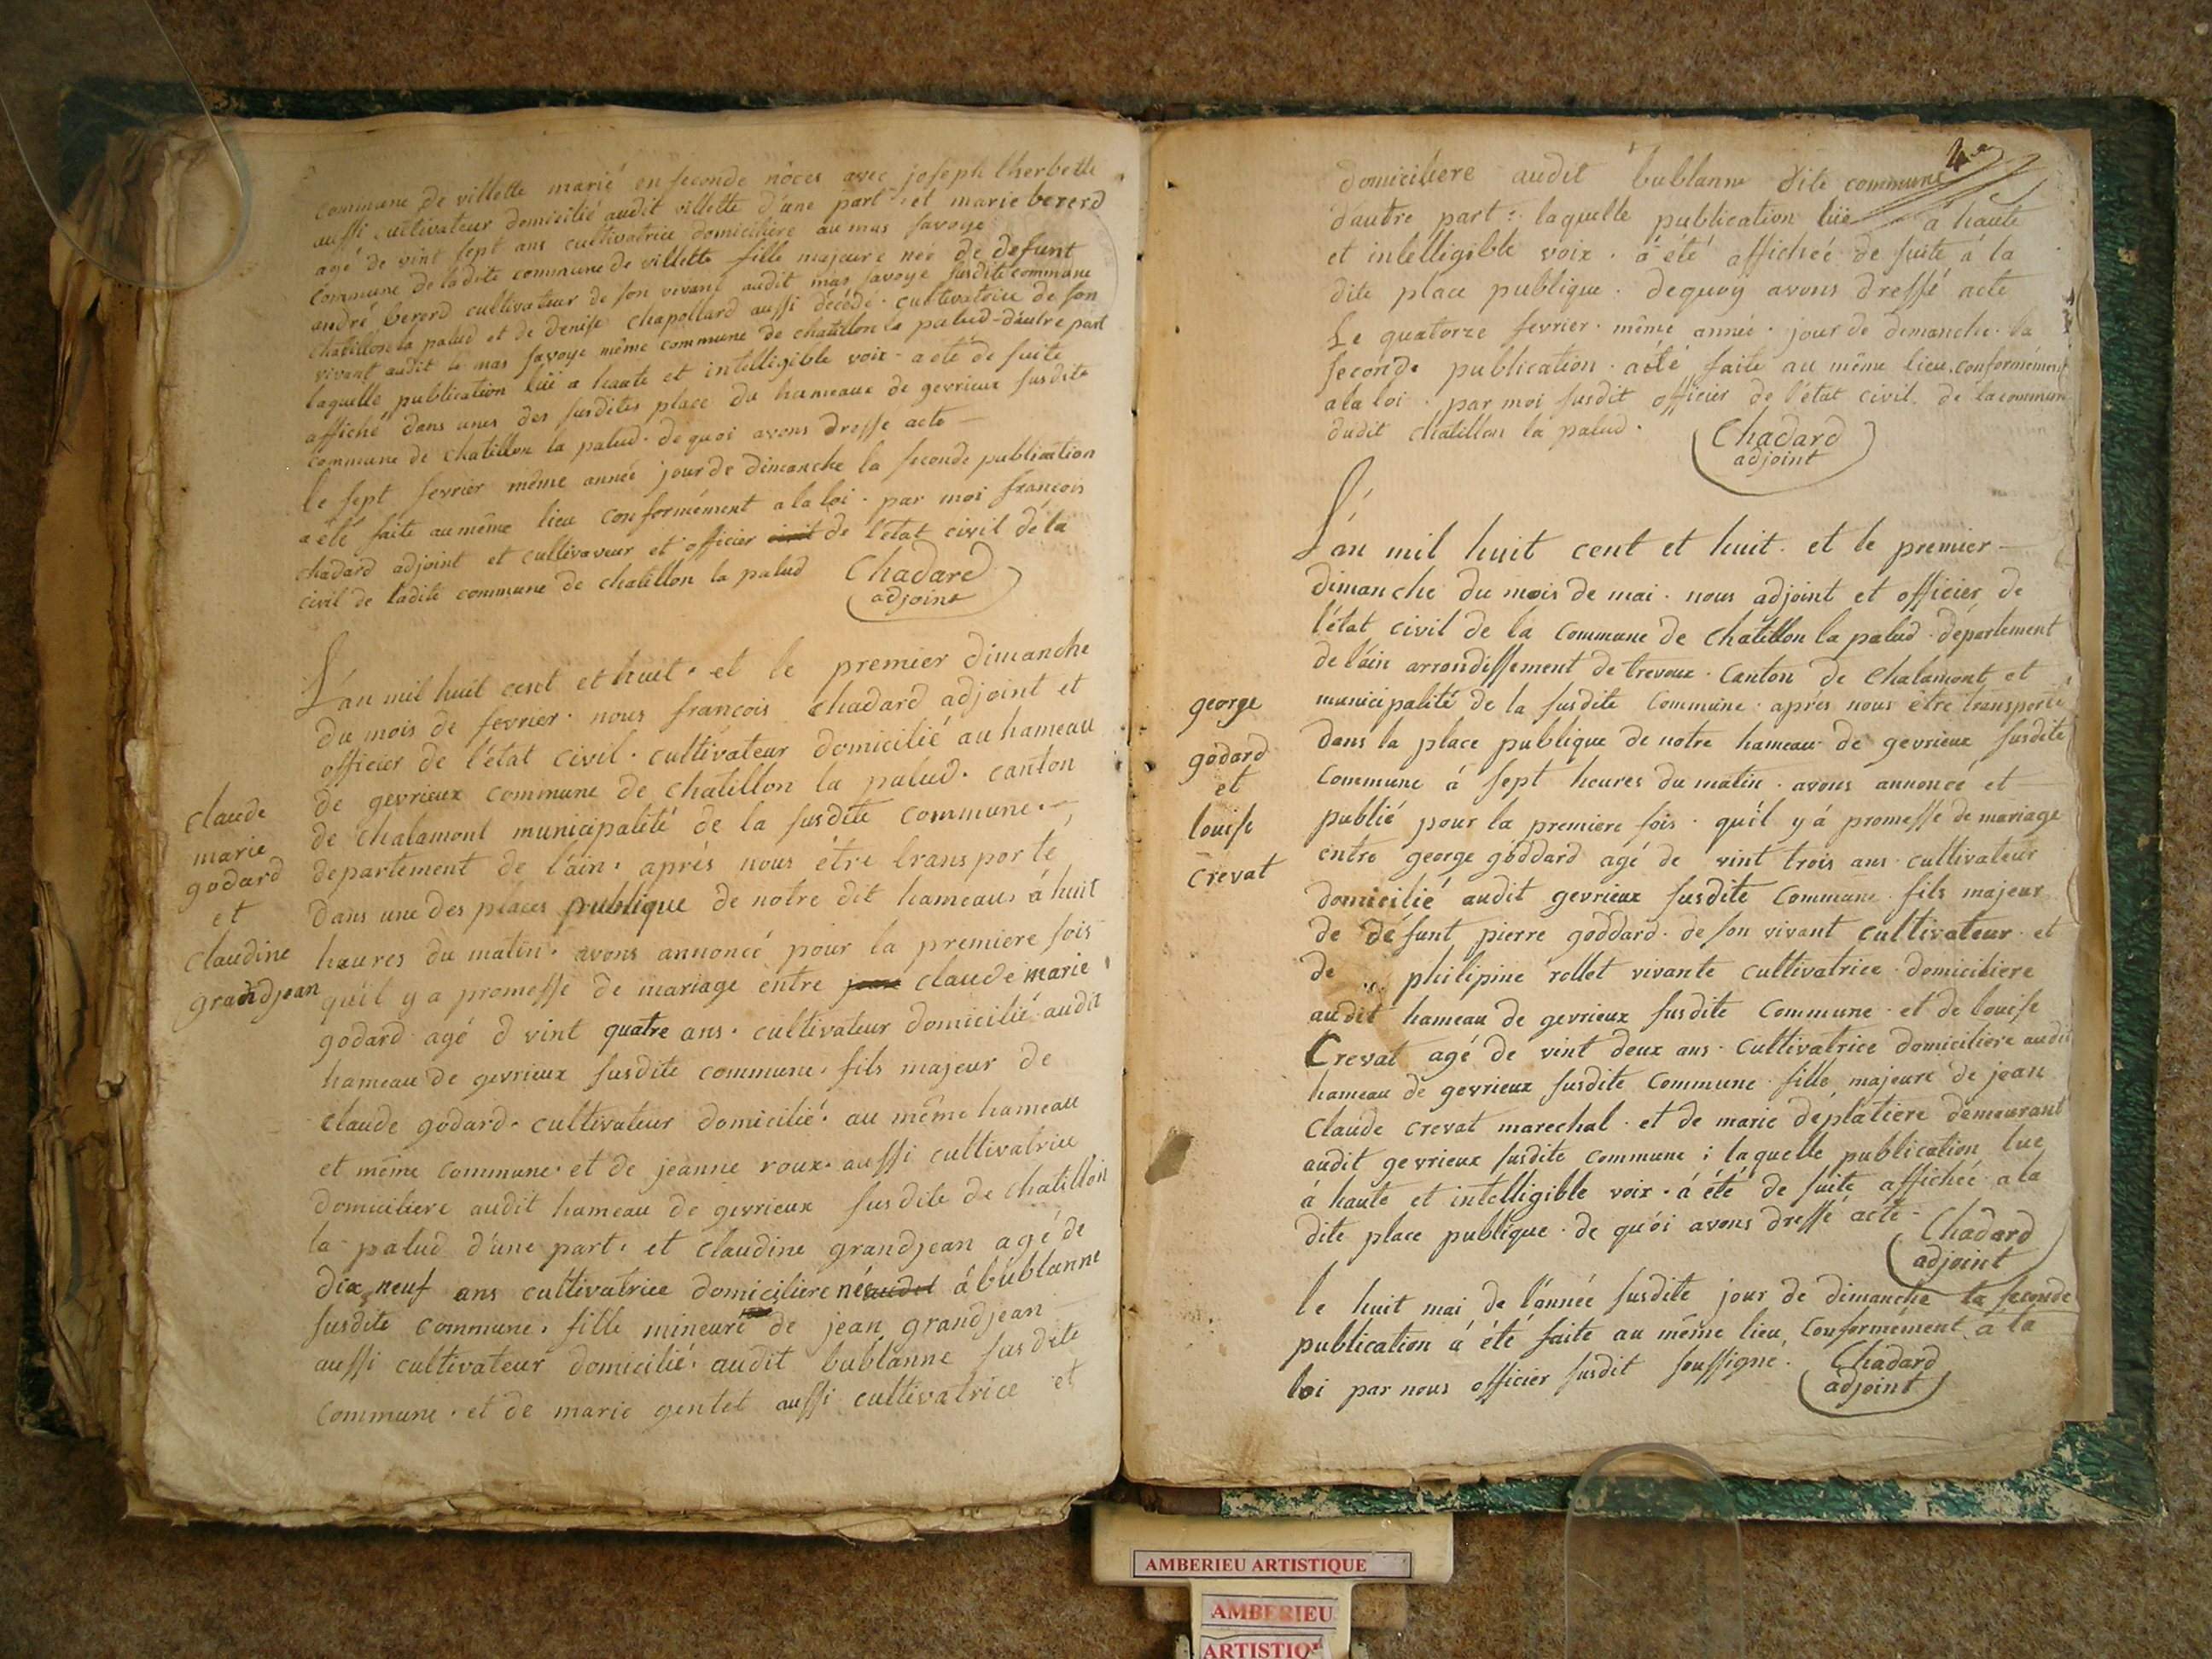 commune de villette marié en seconde nôces avec joseph lherbette
aussi cultivateur domicilié audit villette d'une part et marie bererd
agé de vint sept ans cultivatrice domiciliere au mas savoye
commune de ladite commune de villette fille majeure née de defunt
andré bererd cultivateur de son vivant audit mas savoye susdite commune
chatillon la palud et de denise chapollard aussi décédé. cultivatrice de son
vivant audit le mas savoye même commune de chatillon la palud - d'autre part
laquelle publication lüe a haute et intelligible voix - a été de suite
affiché dans unes des susdites place du hameaux de gevrieux susdite
commune de chatillon la palud. de quoi avons dressé acte —
le sept fevrier même année jour de dimanche la seconde publication
a été faite au même lieu conformément a la loi. par moi françois
chadard adjoint et cultivaveur et officier civil de l'état civil de la
civil de ladite commune de chatillon la palud Chadard
adjoint
L'an mil huit cent et huit. et le premier dimanche
du mois de fevrier. nous françois chadard adjoint et
officier de l'état civil. cultivateur domicilié au hameau
de gevrieux commune de chatillon la palud. canton
de chalamont municipalité de la susdite commune. —
departement de l'ain. aprés nous être transporté
dans une des places publique de notre dit hameau, à huit
heures du matin. avons annoncé pour la premiere fois
qu'il y a promesse de mariage entre jean claude marie
godard agé d vint quatre ans. cultivateur domicilié audit
hameau de gevrieux susdite commune, fils majeur de
claude godard. cultivateur domicilié. au même hameau
et même commune. et de jeanne roux. aussi cultivatrice
domiciliere audit hameau de gevrieux susdite de chatillon
la palud d'une part. et claudine grandjean agé de
dix neuf ans cultivatrice domiciliere née audit à bublanne
susdite commune. fille mineure de jean grandjean
aussi cultivateur domicilié. audit bublanne susdite
commune. et de marie gentet aussi cultivatrice et
claude
marie
godard
et
claudine
grandjean
4me
domiciliere audit bublanne dite commune
d'autre part: laquelle publication lüe à haute
et intelligible voix. à été affichéé de suite à la
dite place publique. dequoy avons dressé acte
Le quatorze fevrier. même année. jour de dimanche. la
seconde publication. a été faite au même lieu, conformément
a la loi. par moi susdit officier de l'état civil. de la commun
dudit chatillon la palud. Chadard
adjoint
L'an mil huit cent et huit. et le premier —
dimanche du mois de mai. nous adjoint et officier de
l'état civil de la commune de chatillon la palud. département
de l'ain arrondissement de trevoux. Canton de Chalamont et
municipalité de la susdite Commune. aprés nous être transporté
dans la place publique de notre hameau de gevrieux susdite
Commune à sept heures du matin. avons annoncé et —
publié pour la premiere fois. qu'il y à promesse de mariage
entre george goddard agé de vint trois ans. cultivateur
domicilié audit gevrieux susdite Commune. fils majeur
de défunt pierre goddard. de son vivant cultivateur. et
de philipine rollet vivante cultivatrice domiciliere
audit hameau de gevrieux susdite Commune. et de louise
Crevat agé de vint deux ans. Cultivatrice domiciliere audit
hameau de gevrieux susdite Commune. fille majeure de jean
Claude Crevat marechal. et de marie déplatiere demeurant
audit gevrieux susdite Commune; laquelle publication lue
à haute et intelligible voix. à été de suite affichéé a la
dite place publique. de quoi avons dressé acte - Chadard
adjoint
le huit mai de l'année susdite jour de dimanche la seconde
publication à été faite au même lieu, Conformément à la
loi par nous officier susdit soussigné. Chadard
adjoint
george
godard
et
louise
crevat
AMBERIEU ARTISTIQUE
AMBERIEU
ARTISTIQ